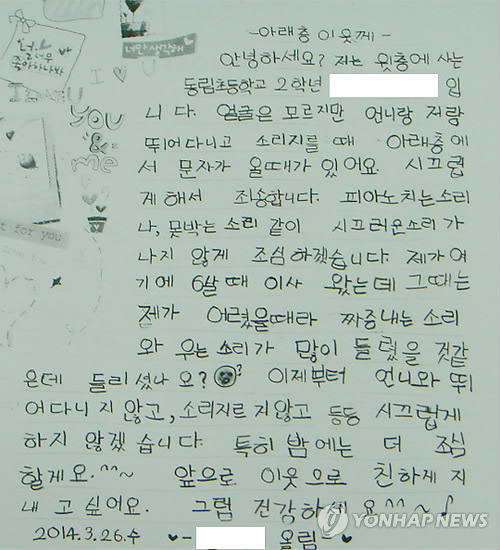 너..
그러우
좋아하나봐
너만 생각해
I ♡ U
YOU
&
me
t for you
-아래층 이웃께-
안녕하세요? 저는 윗층에 사는
동림초등학교 2학년 입
니다. 얼굴은 모르지만 언니랑 저랑
뛰어다니고 소리지를 때 아래층에
서 문자가 올때가 있어요. 시끄럽
게 해서 죄송합니다. 피아노치는소리
나, 못박는 소리 같이 시끄러운소리가
나지 않게 조심하겠습니다. 제가여
기에 6살 때 이사 왔는데 그때는
제가 어렸을때라 짜증내는 소리
와 우는소리가 많이 들렸을 것같
은데 들리셨나요? ? 이제부터 언니와 뛰
어다니지 않고, 소리지르지않고 등등 시끄럽게
하지 않겠습니다. 특히 밤에는 더 조심
할게요.^^~ 앞으로 이웃으로 친하게 지
내고 싶어요. 그럼 건강하세요^^~♪
2014.3.26.수 ♥- 올림- ♥
YONHAPNEWS